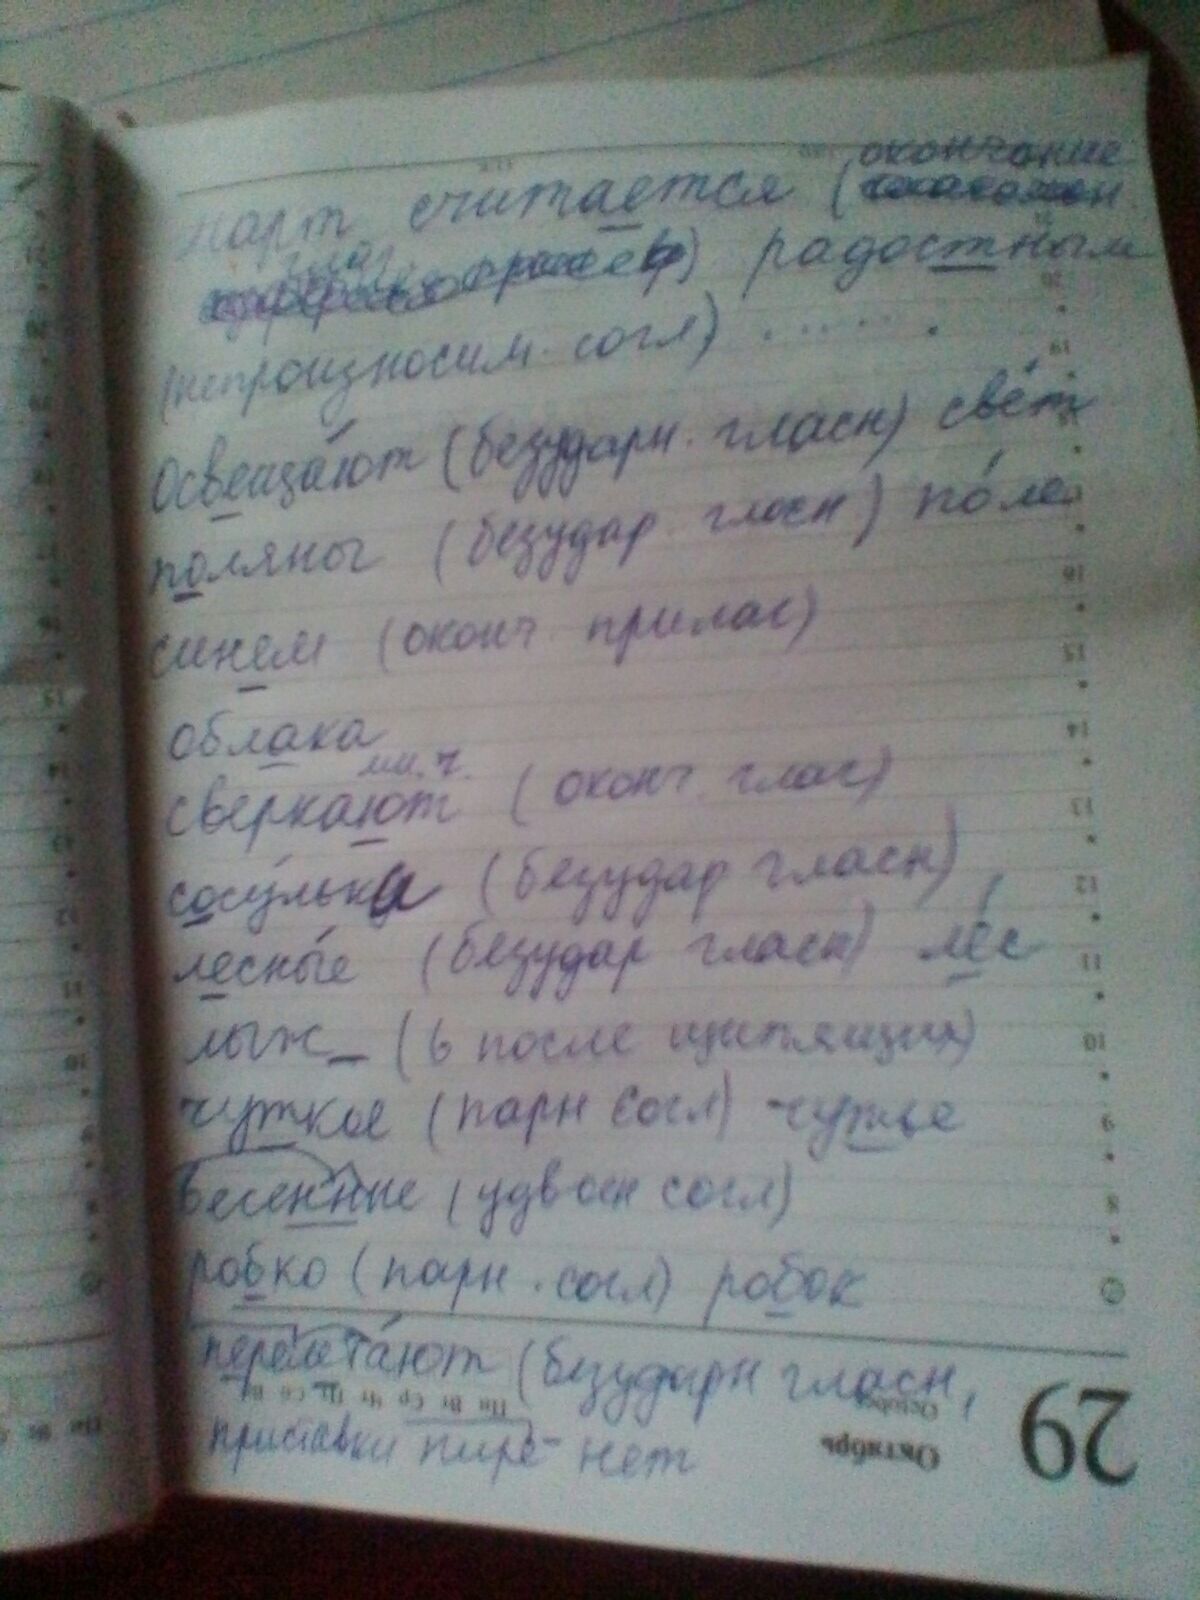 март считается (окончание
глаг.) радостным
(непроизносим. согл) . . . . . . .
Освеща́ют (безударн. гласн) све́т
поляны (безудар. гласн) по́ле
синем (оконч. прилаг)
облака
мн. ч.
сверкают (оконч. глаг)
сосу́лька (безудар гласн)
лесны́е (безудар гласн) ле́с
лыж_ (ь после шипящих)
чуткое (парн согл)
весенние (удвоен согл)
робко (парн. согл) робок
перелета́ют (безударн гласн,
приставки пире- нет
Октябрь
29
20
19
16
15
14
13
12
11
10
9
8
15
14
13
12
11
10
9
8